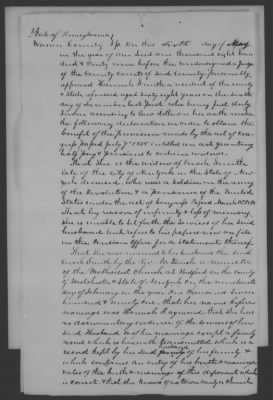 State of Pennsylvania
Warren County Ss. On this Sixth day of May
in the year of our Lord one thousand eight hund
red & thirty nine before the undersigned a Judge
of the County Courts of said County, personally
appeared Hannah Smith a resident of the county
& State aforesaid aged sixty eight years on the tenth
day of December last past who being first duly
sworn according to law doth on her oath make
the following declaration in order to obtain the
benefit of the provision made by the act of con
gress passed July 7th 1838 entitled an act granting
half pay & pensions to certain widows
That she is the widow of Enoch Smith
late of the City of New York in the State of New
York deceased, who was a soldier in the army
of the Revolution & a pensioner of the United
States under the act of Congress passed March 18 1818
that by reason of infirmity & loss of memory
she is unable to set forth the services of her said
husband but refers to his papers now on file
in the Pension Office for a statement thereof
That she was married to her husband the said
Enoch Smith by the Rev. a minister
of the Methodist Church at Bedford in the County
of Westchester & State of New York on the nineteenth
day of February in the year one thousand seven
hundred & ninety one, that her name before
marriage was Hannah Raymond that she has
no documentary evidence of the services of her
said Husband or of her marriage except a family
record which is herewith transmitted which is a
record kept by her said husband of his family &
which contains an entry of his birth & marriage
dates of the birth & marriage of this deponent which
is correct & that she knows of no Town or City or Church